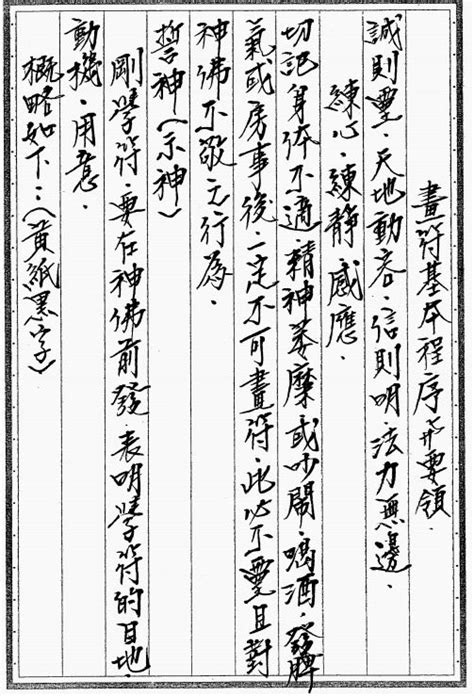 畫符基本程序及要領.
誠則靈.天地動容.信則明.法力無邊.
練心.練靜.感應.
切記身体不適.精神萎糜.或吵鬧.喝酒.發脾
氣或房事後.一定不可畫符.此必不靈且對
神佛不敬之行為.
誓神(示神)
剛學符.要在神佛前發.表明學符的目地.
動機.用意.
概略如下:(黃紙黑字)